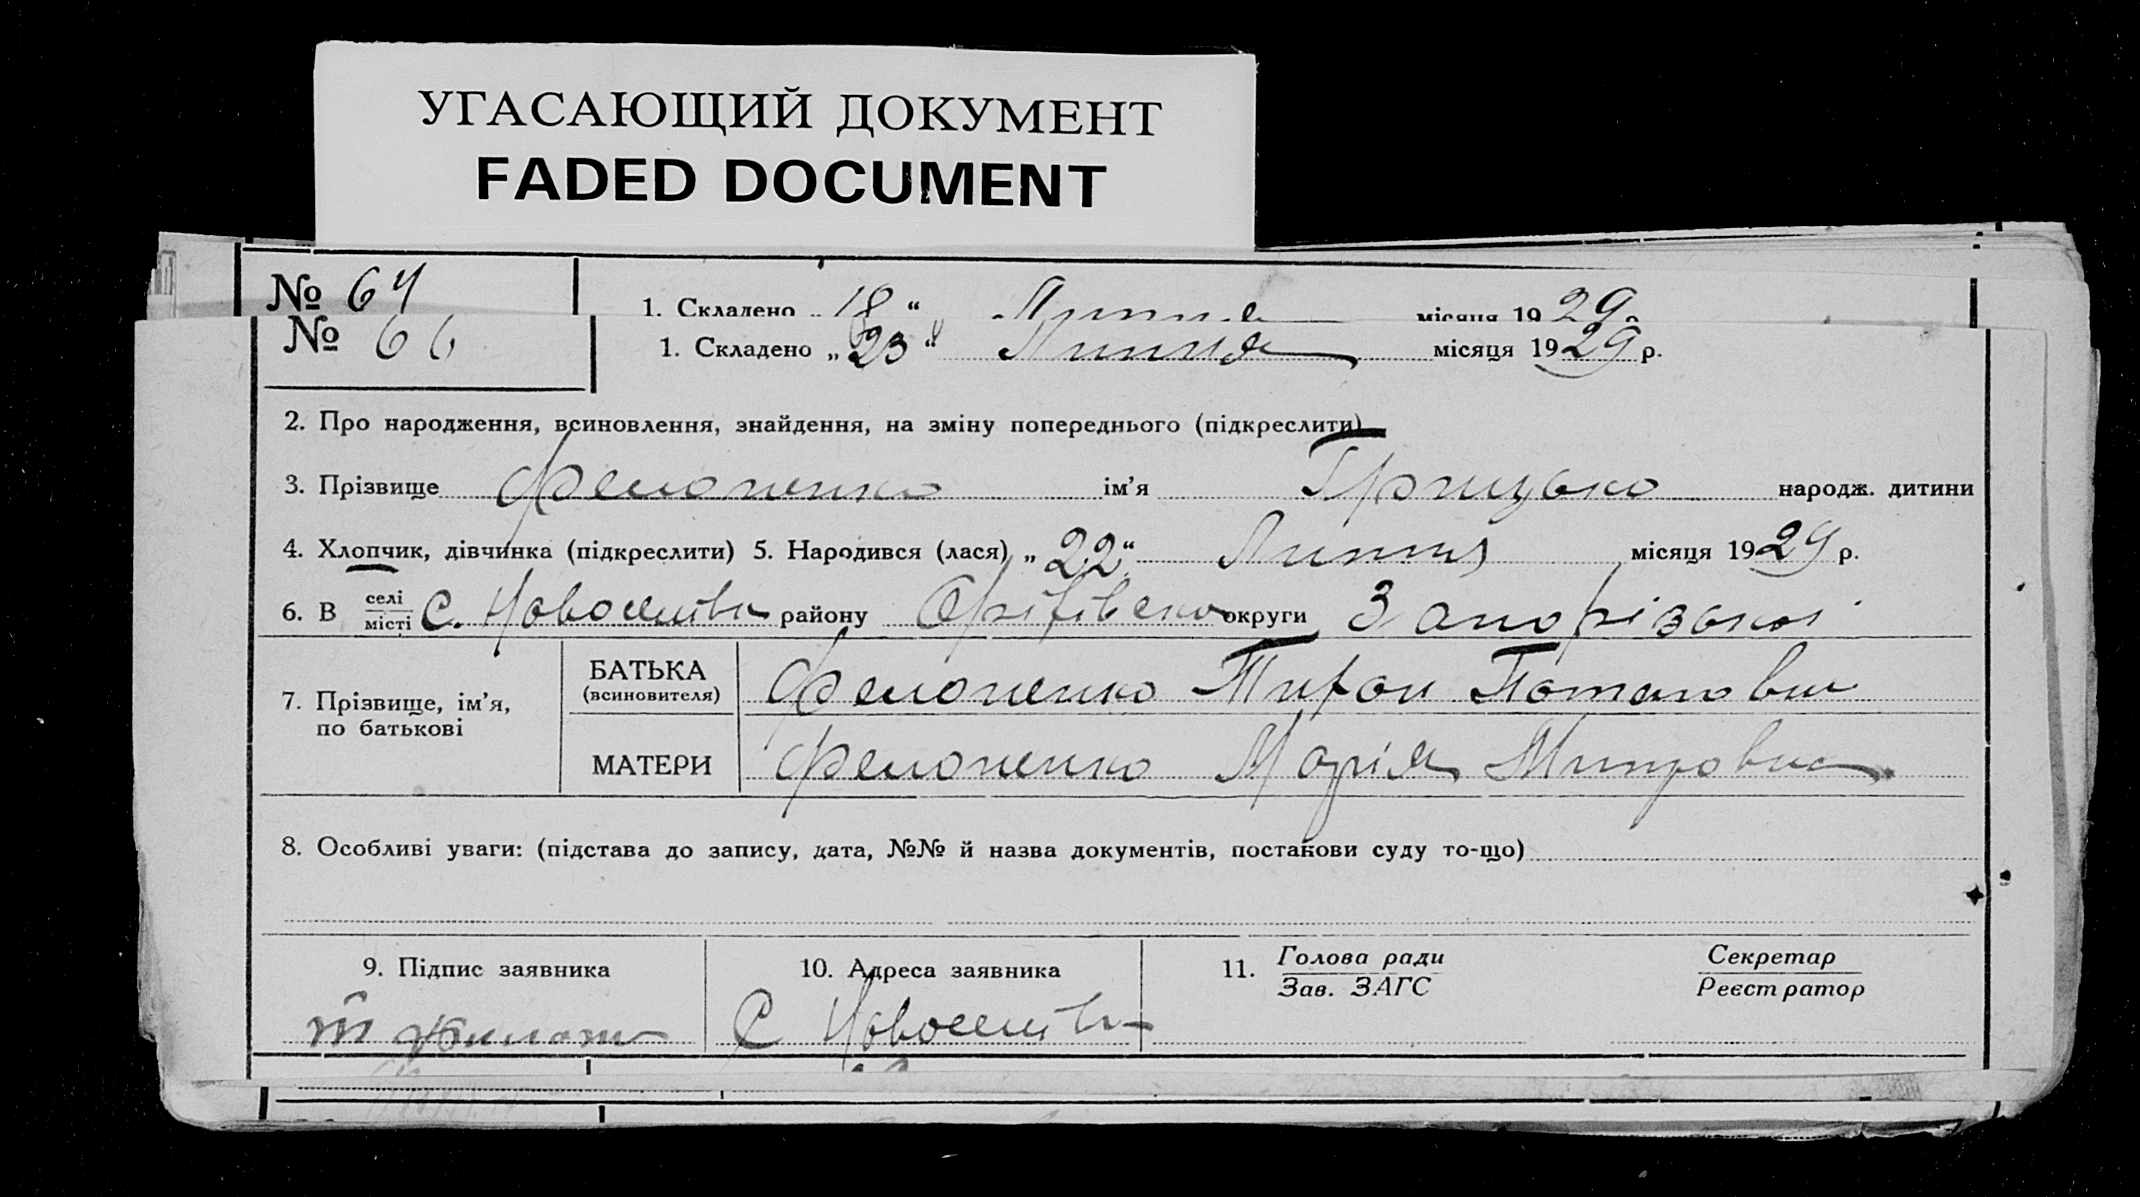 УГАСАЮЩИЙ ДОКУМЕНТ
FADED DOCUMENT
№ 64 1. Складено „18“ Липня місяця 1929 р.
№ 66 1. Складено „23“ Липня місяця 1929 р.
2. Про народження, всиновлення, знайдення, на зміну попереднього (підкреслити)
3. Прізвище Филоненко ім’я Грицько народж. дитини
4. Хлопчик, дівчинка (підкреслити) 5. Народився (лася) „22“ Липня місяця 1929 р.
6. В селі місті С. Новоселівка району Оріхівсько округи Запорізької
7. Прізвище, ім’я, по батькові
БАТЬКА (всиновителя) Филоненко Потапович
МАТЕРИ Филоненко Марія
8. Особливі уваги: (підстава до запису, дата, №№ й назва документів, постанови суду то-що)
9. Підпис заявника 10. Адреса заявника 11. Голова ради Секретар
Зав. ЗАГС Реєстратор
С Новоселівка